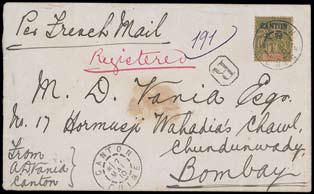 Per French Mail
191
Registered
CANTON
R
M. D. Vania Esqr.
No. 17 Hormusji Wahadia's Chawl,
Chundunwady,
Bombay
From
Canton
CANTON